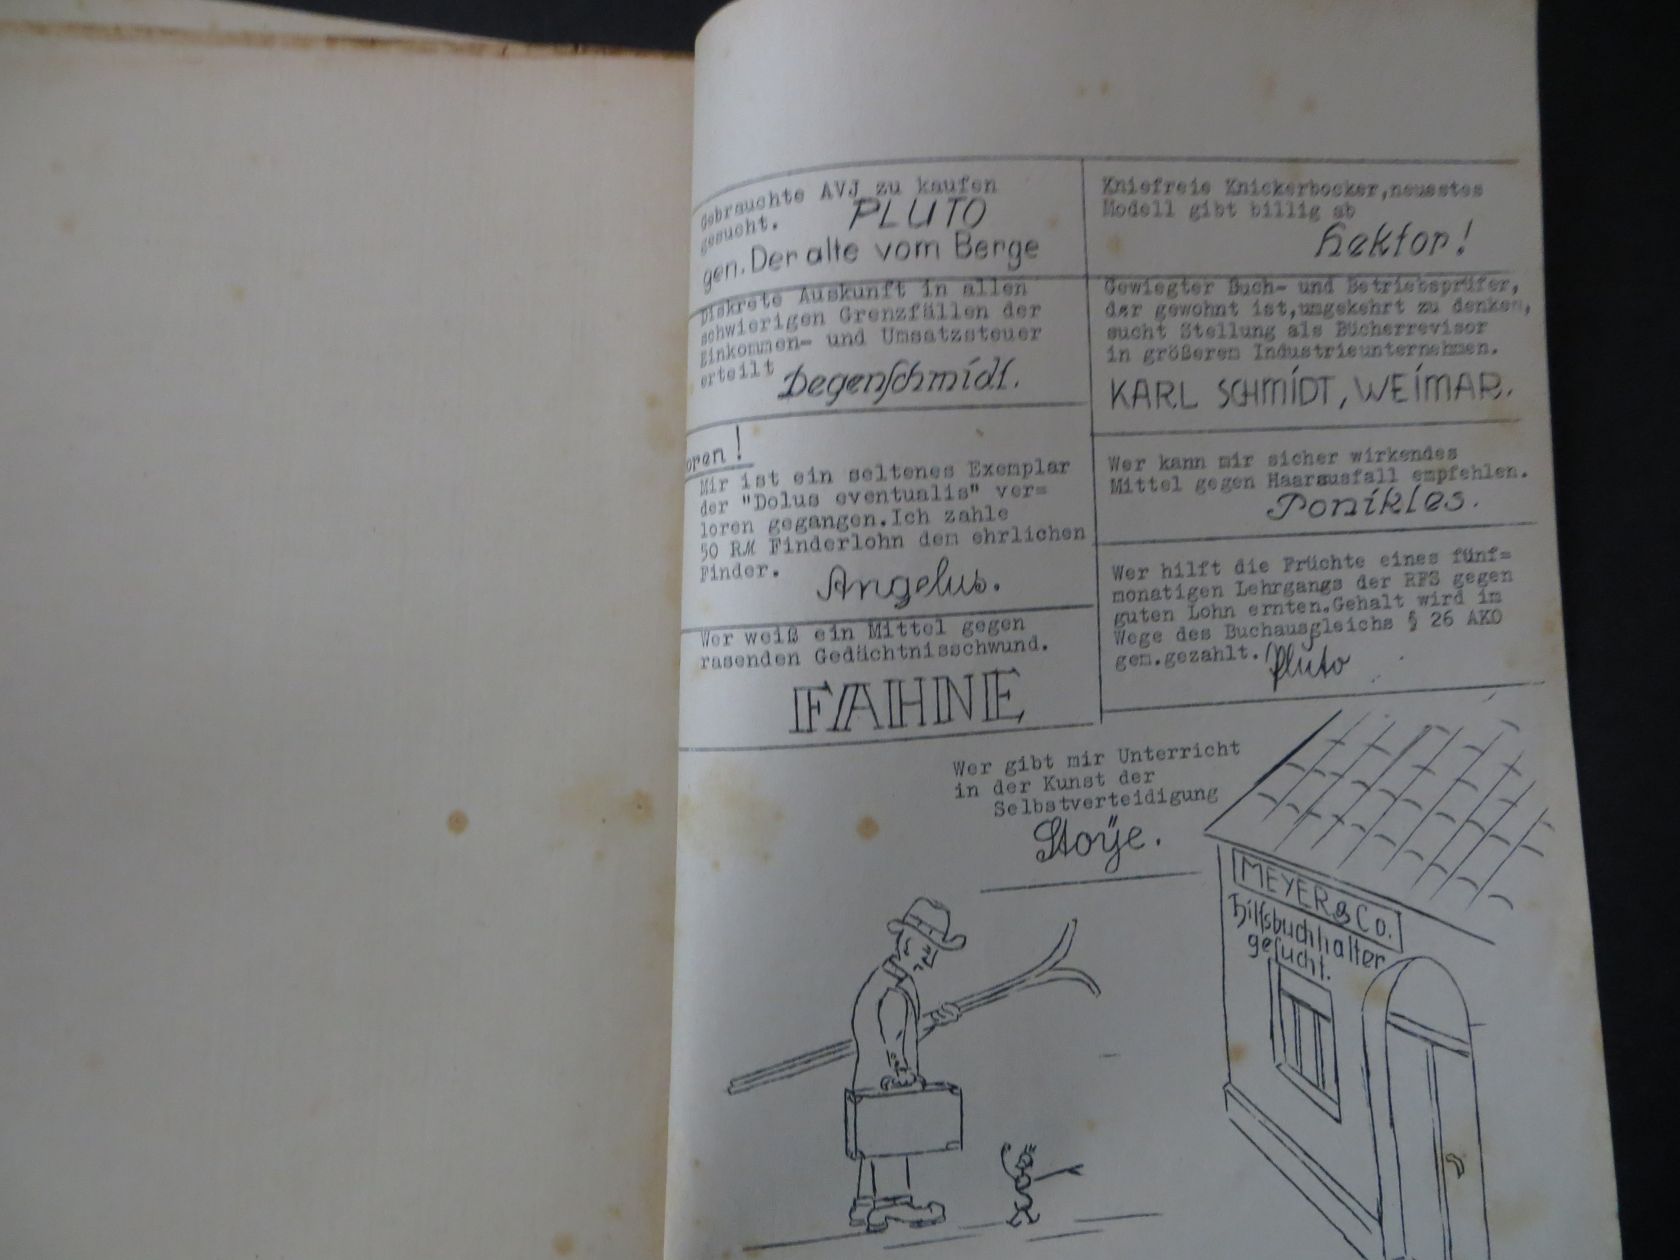 Gebrauchte AVJ zu kaufen
gesucht. PLUTO
gen. Der alte vom Berge
Diskrete Auskunft in allen
schwierigen Grenzfällen der
Einkommen- und Umsatzsteuer
erteilt Degenschmidt.
oren!
Mir ist ein seltenes Exemplar
der "Dolus eventualis" ver=
loren gegangen.Ich zahle
50 RM Finderlohn dem ehrlichen
Finder.
Angelus.
Wer weiß ein Mittel gegen
rasenden Gedächtnisschwund.
FAHNE
Kniefreie Knickerbocker,neuestes
Modell gibt billig ab
Hektor!
Gewiegter Buch- und Betriebsprüfer,
der gewohnt ist,umgekehrt zu denken,
sucht Stellung als Bücherrevisor
in größerem Industrieunternehmen.
KARL SCHMIDT, WEIMAR.
Wer kann mir sicher wirkendes
Mittel gegen Haarausfall empfehlen.
Ponikles.
Wer hilft die Früchte eines fünf=
monatigen Lehrgangs der RFS gegen
guten Lohn ernten.Gehalt wird im
Wege des Buchausgleichs § 26 AKO
gem.gezahlt. Pluto
Wer gibt mir Unterricht
in der Kunst der
Selbstverteidigung
Stoÿe.
MEYER & Co.
Hilfsbuchhalter
gesucht.